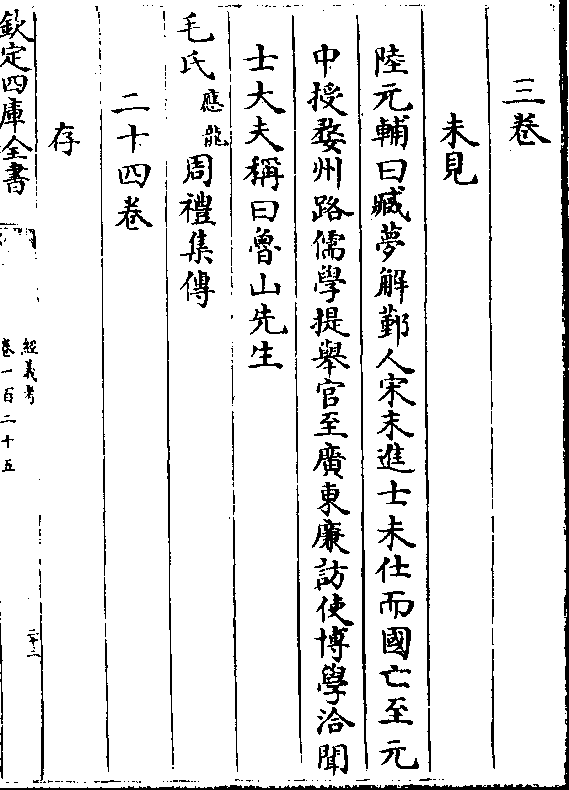 三卷
未見
陸元輔曰臧夢解鄞人宋末進士未仕而國亡至元
中授婺州路儒學提舉官至廣東廉訪使博學洽聞
士大夫稱曰魯山先生
毛氏應龍周禮集傳
二十四卷
存
欽定四庫全書
經義考
卷一百二十五
二十二